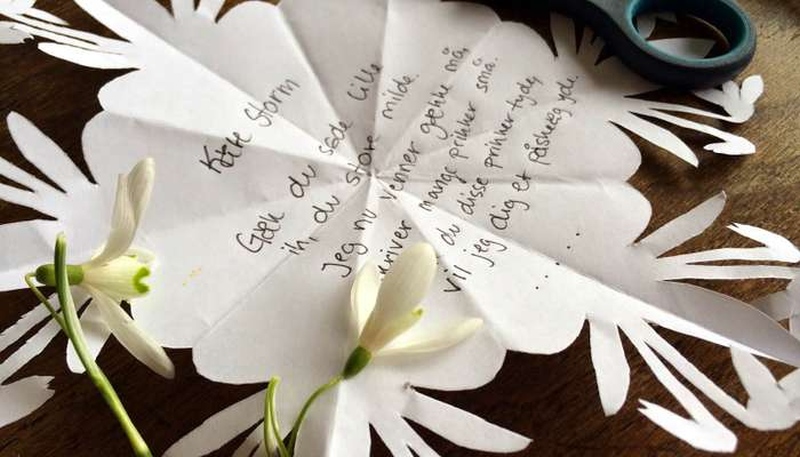 Kære Storm
Gæk du søde lille
ih, du store milde.
Jeg nu venner gække må,
mange prikker små.
du disse prikker tyde,
vil jeg dig et påskeæg yde.
.....